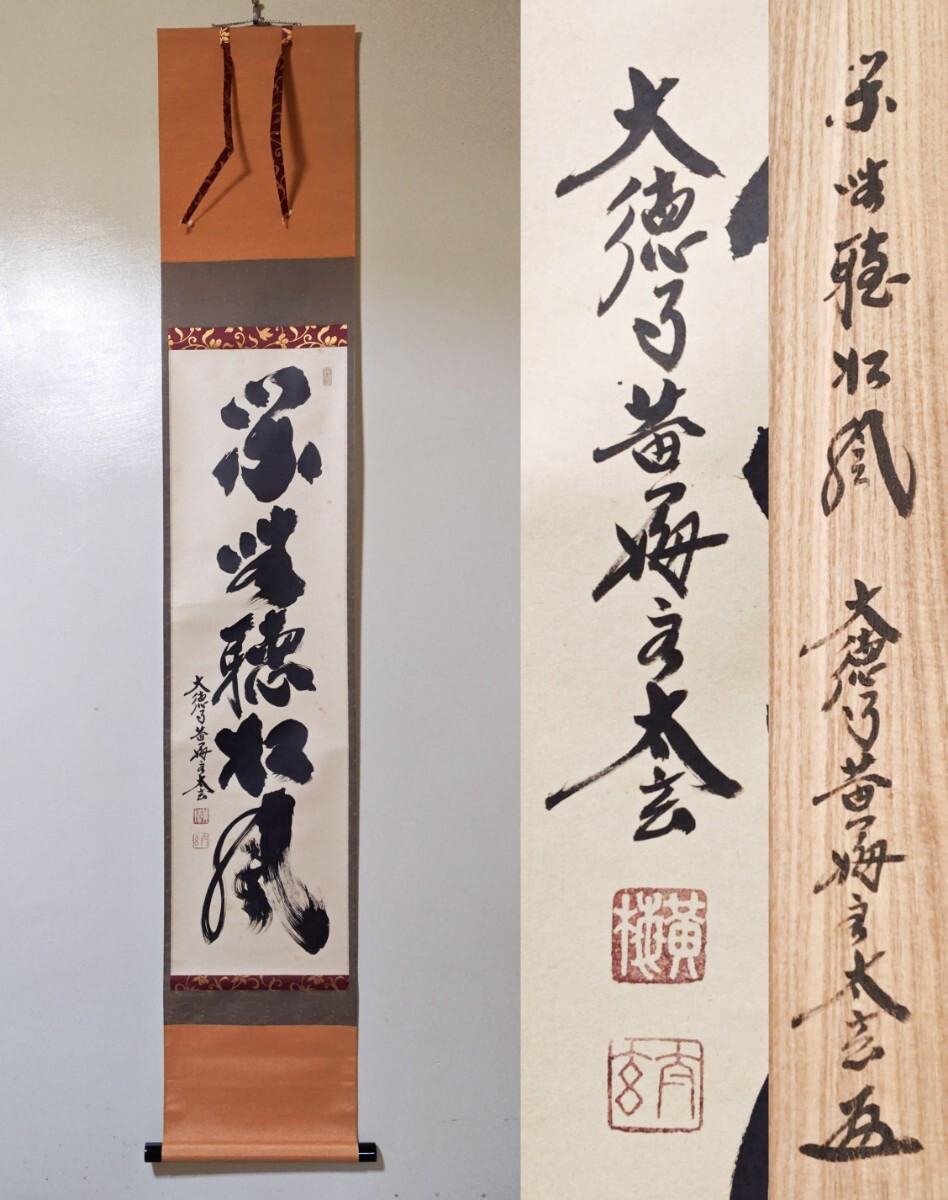 閑坐聴松風
大徳寺黄梅主太玄
大徳寺黄梅主太玄
黄梅
閑坐聴松風 大徳寺黄梅主太玄